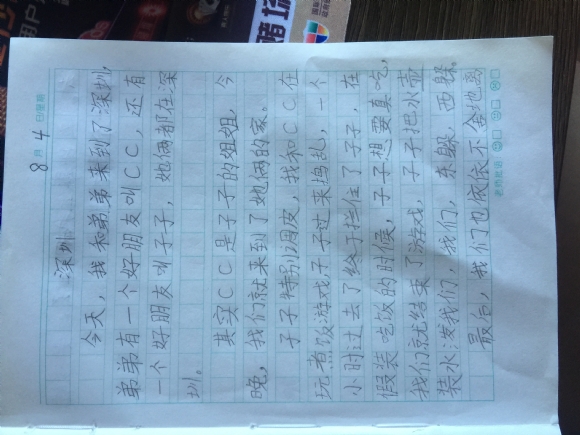 8月4日星期
深圳
今天，我和弟弟来到了深圳，
弟弟有一个好朋友叫CC，还有
一个好朋友叫子子，她俩都在深
圳。
其实CC是子子的姐姐，今
晚，我们就来到了她俩的家。
子子特别调皮，我和CC在
玩煮饭游戏，子子过来捣乱，一个
小时过去了终于拦住了子子，在
假装吃饭的时候，子子想要真吃，
我们就结束了游戏，子子把水壶
装水泼我们，我们，东躲，西躲。
最后，我们也依依不舍地离
老师批语
用户